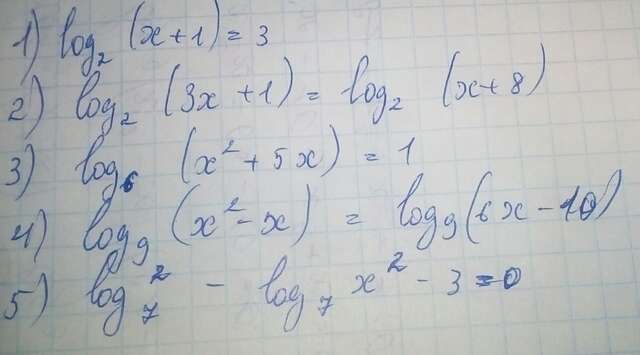 1) log₂ (x+1) = 3
2) log₂ (3x+1) = log₂ (x+8)
3) log₆ (x²+5x) = 1
4) log₉ (x²-x) = log₉ (6x-10)
5) log₇² - log₇ x² - 3 = 0